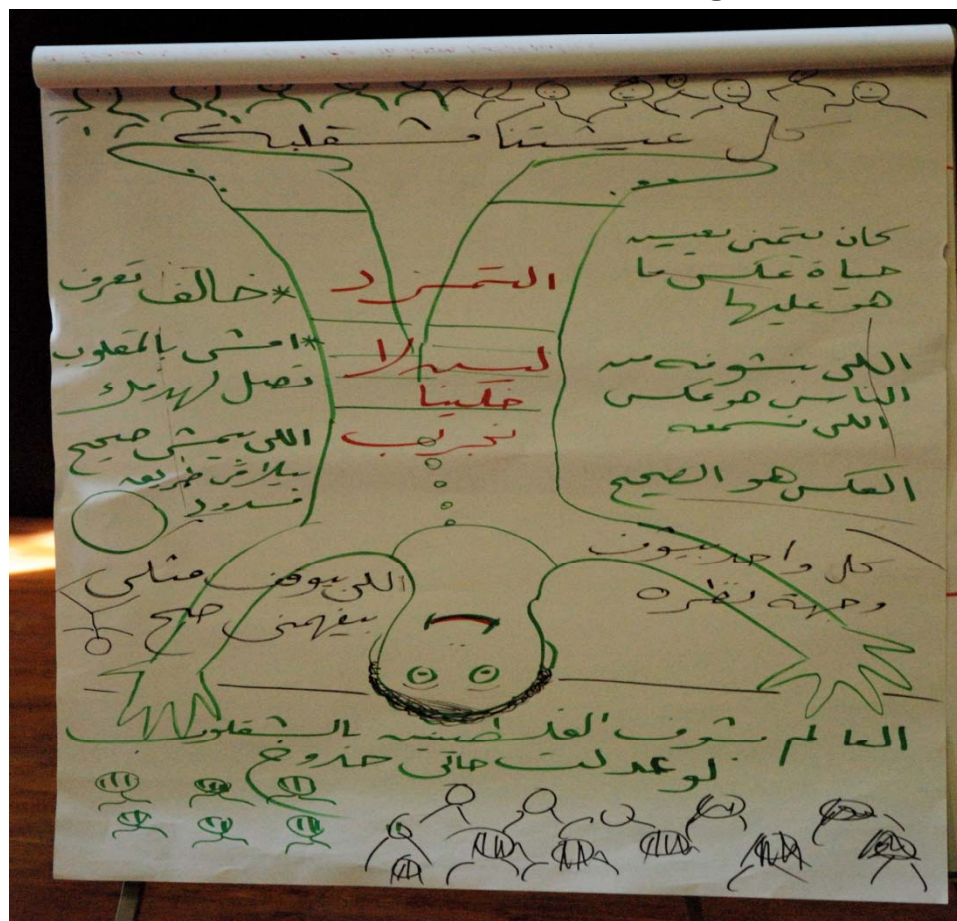 عيشتنا مشقلبة
كان يتمنى يعيش
حياة عكس ما
هو عليها
اللي بنشوفه من
الناس هو عكس
اللي بنسمعه
العكس هو الصحيح
كل واحد بيوقف
وجهة نظره
التمرد
ليش لا
خلينا
نجرب
*خالف تعرف
*امشي بالمقلوب
تصل لهدفك
اللي بيمشي صحيح
بيلاقي طريقه
مسدود
اللي بيوقف مثلي
بيفهمني صح
العالم بشوف الفلسطينيه بالشقلوب
لو عدلت